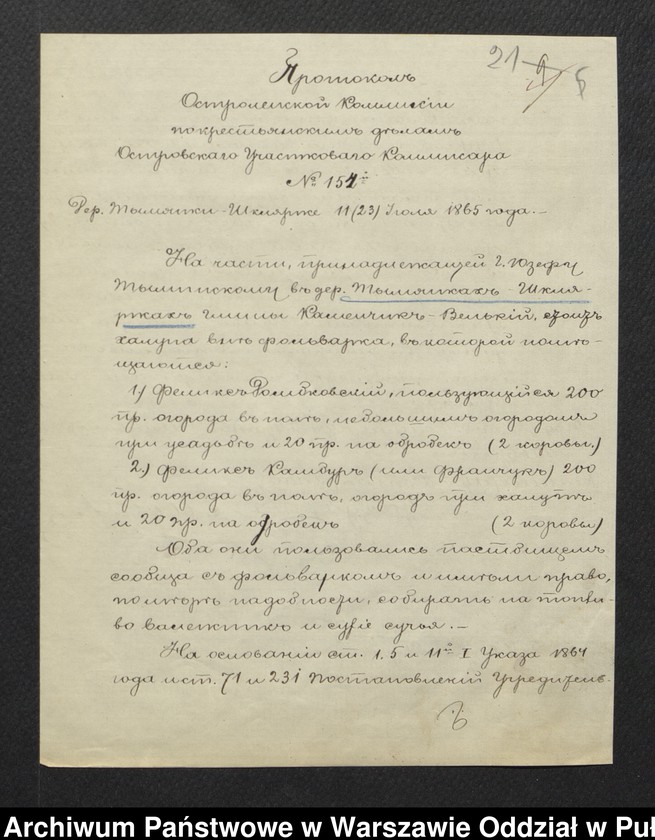 21
Протоколъ
Остроленской Коммисіи
по крестьянскимъ дѣламъ
Островскаго Участковаго Коммисара
№ 154
Дер. Тымянки-Шклярже 11 (23) Іюля 1865 года.—
На части, принадлежащей г. Юзефу
Тыминскому въ дер. Тымянкахъ-Шкля-
ржахъ гмины Каменчикъ-Велькій, есть
халупа внѣ фольварка, въ которой помѣ-
щаются:
1) Феликсъ Ромбковскій, пользующійся 200
пр. огорода въ полѣ, небольшимъ огородомъ
при усадьбѣ и 20 пр. на обробекъ (2 коровы.)
2.) Феликсъ Камбуръ (или Францукъ) 200
пр. огорода въ полѣ, огородъ при халупѣ
и 20 пр. на обробекъ (2 коровы)
Оба они пользовались пастбищемъ
сообща съ фольваркомъ и имѣли право,
по мѣрѣ надобности, собирать на топли-
во валежникъ и сухіе сучья.—
На основаніи ст. 1. 5 и 11 I Указа 1864
года и ст. 71 и 231 Постановленій Учредитель.
Archiwum Państwowe w Warszawie Oddział w Puł